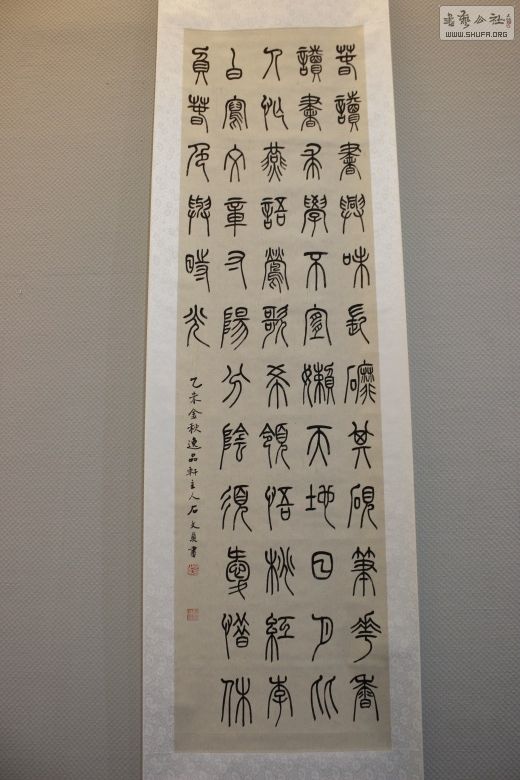 春讀書興味長磨其硯筆花香
讀書求學不宜嬾天地日月比
人忙燕語鶯歌希領悟桃紅李
白寫文章寸陽分陰須愛惜休
負春色與時光
乙未金秋逸品軒主人石文書
書藝公社
WWW.SHUFA.ORG